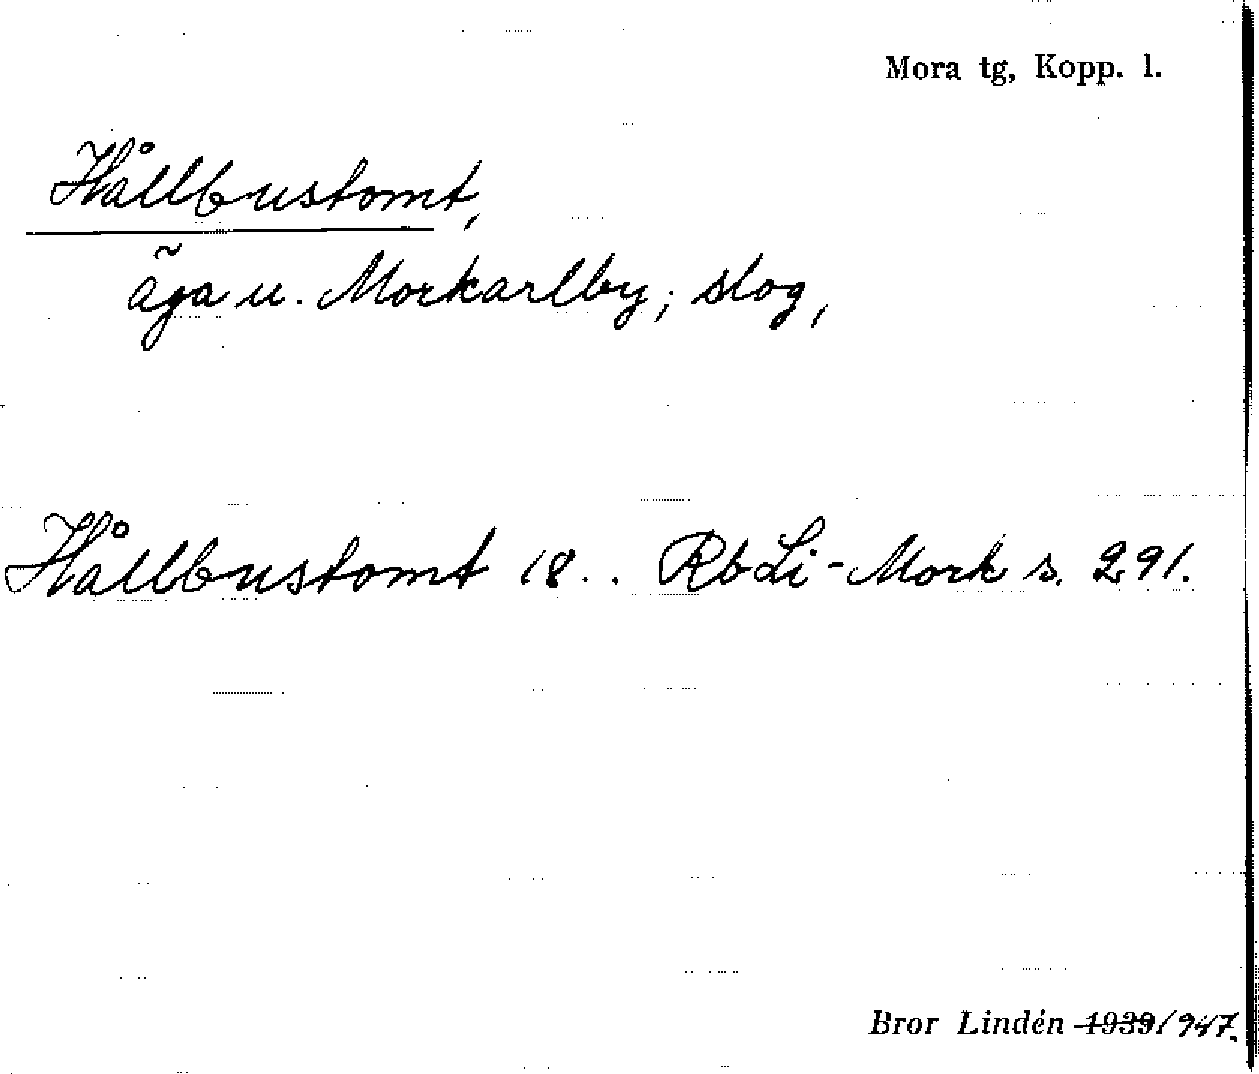 Mora tg, Kopp. l.
Hållbustomt,
äga u. Morkarlby; slog,
Hållbustomt 18.. RbLi-Mork s. 291.
Bror Lindén 1939/947.